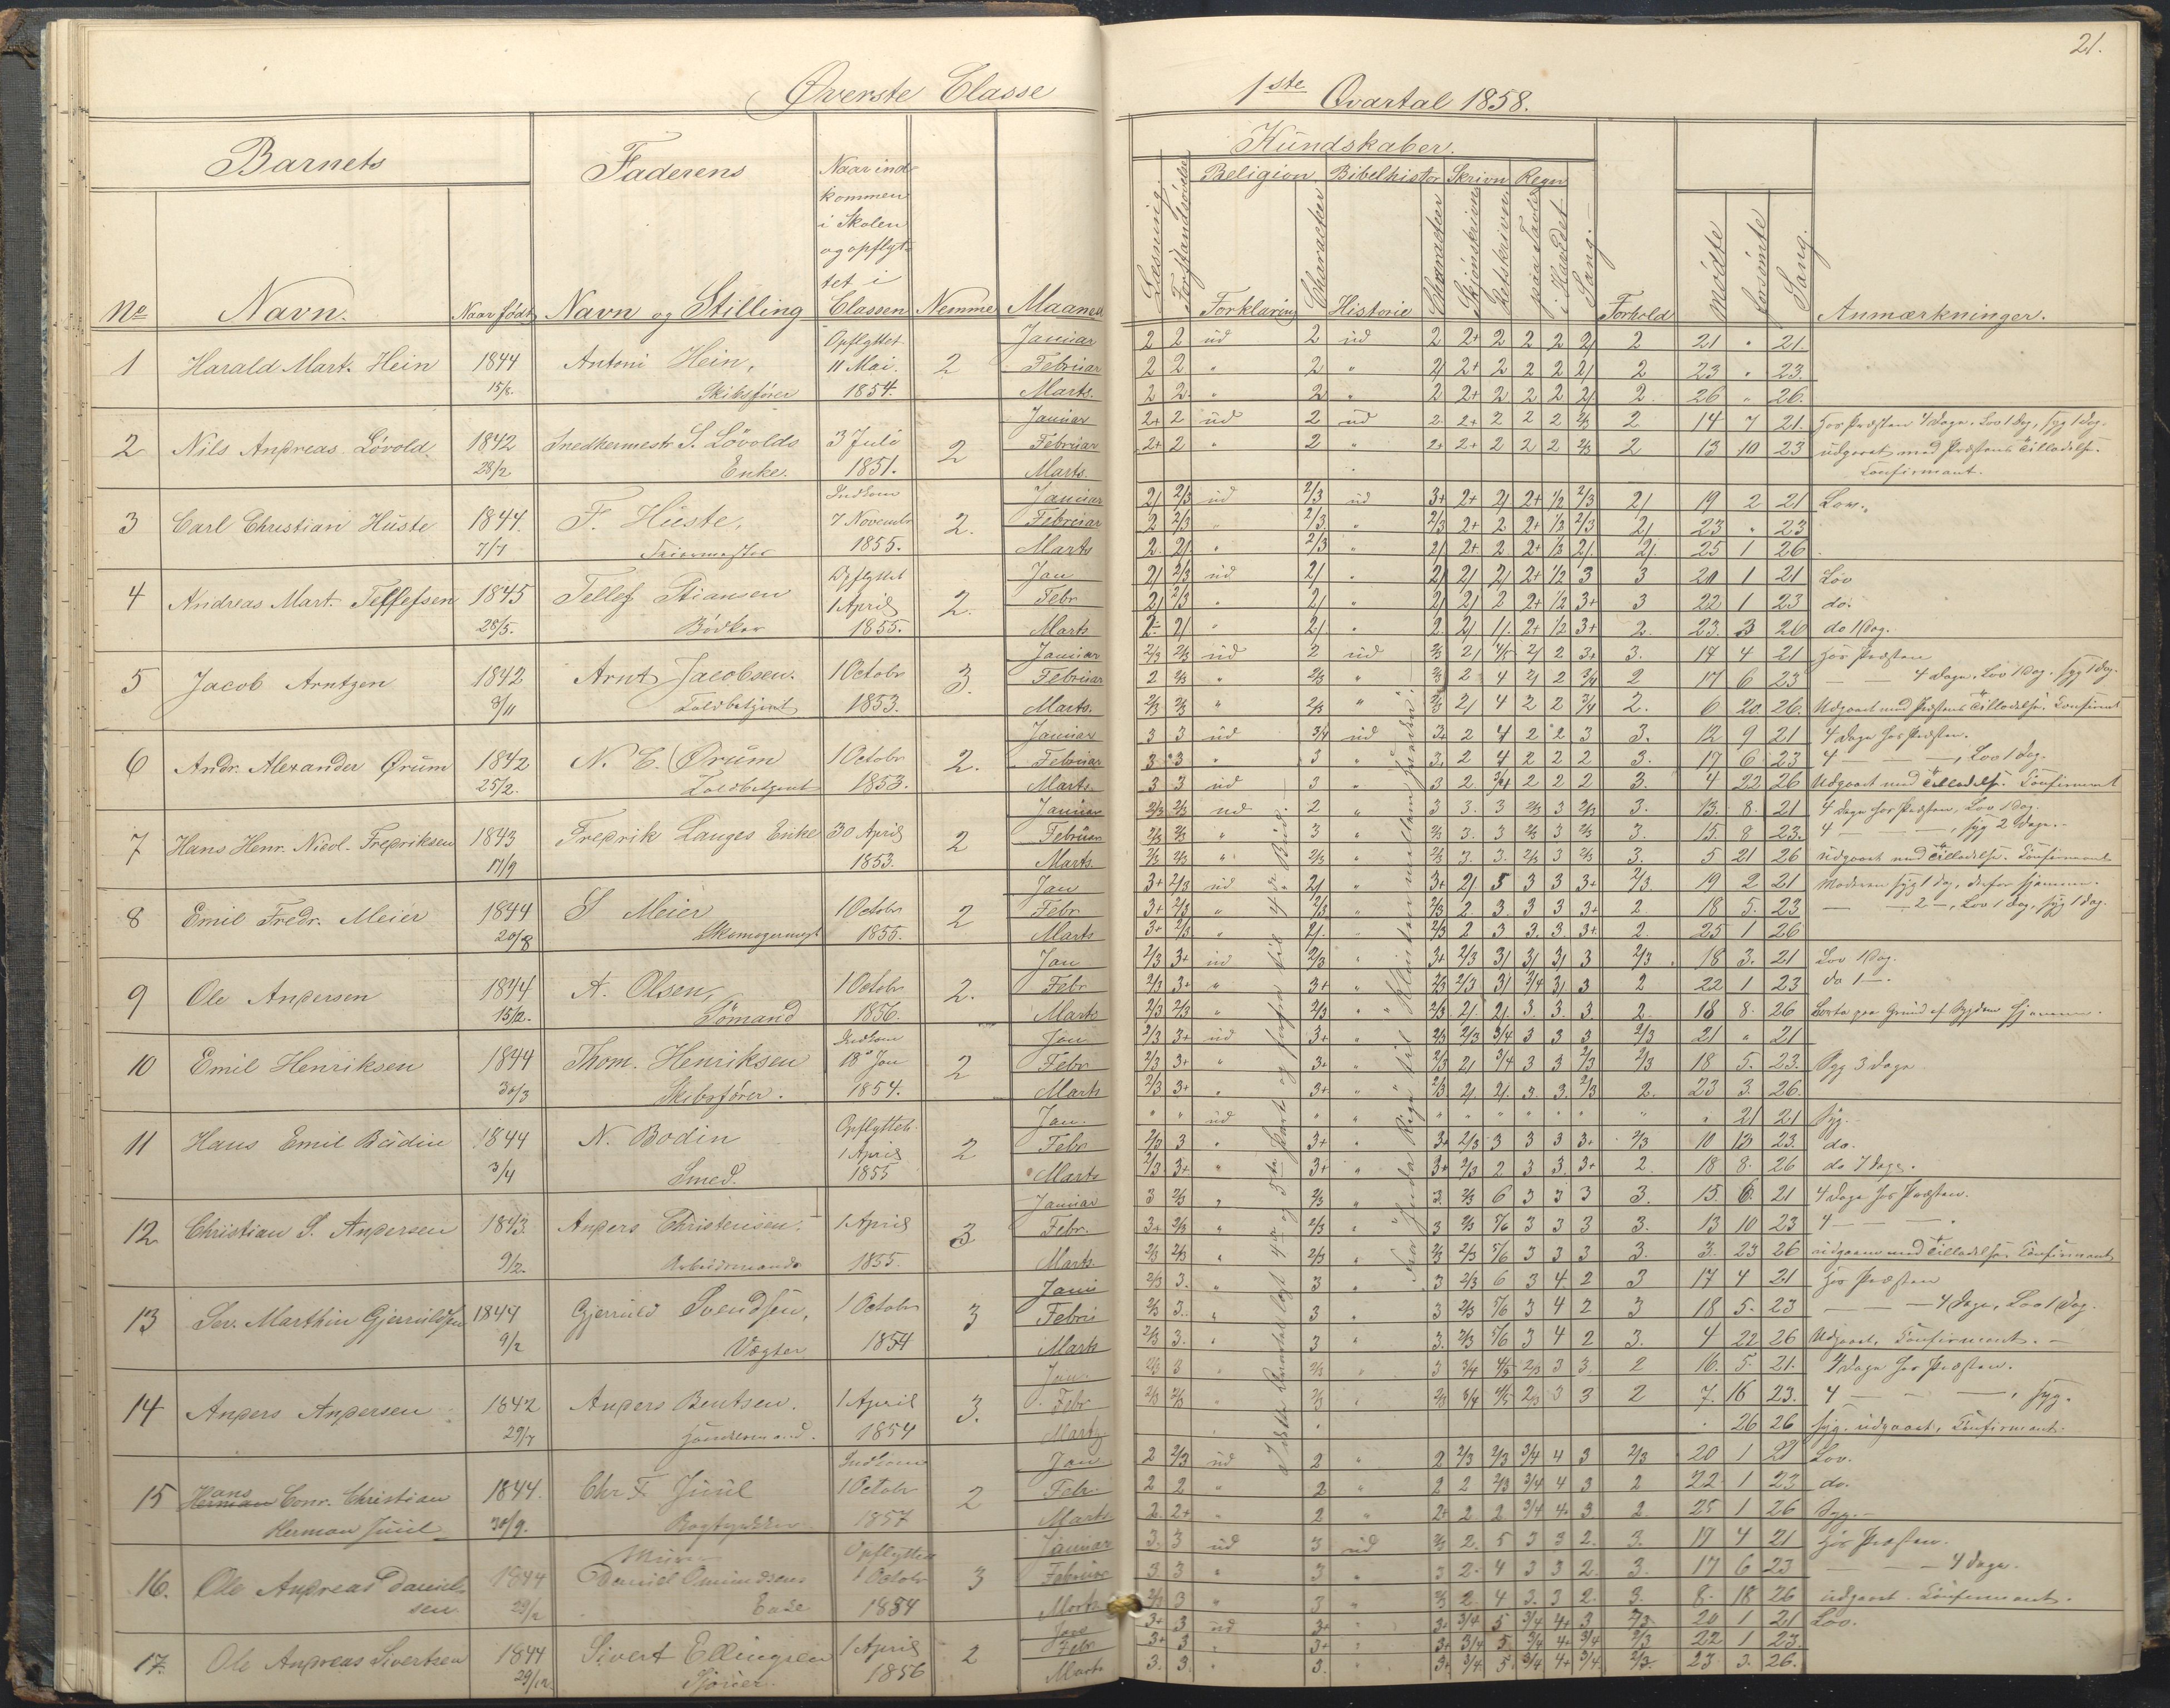 21.
Øverste Classe
1ste Qvartal 1858.
Barnets
Faderens
Naar ind-
kommen
i Skolen
og opflyt-
tet i
Classen
Nemme
Maaned
Kundskaber.
Religion Bibelhistor Skrivn Regn
No Navn. Naar født Navn og Stilling
Læsning. Forstandsøvelser Forklaring Character Historie Character Skjönskrivn Retskrivn paa Tavle i Hovedet Sang. Forhold mödte forsömte Sang. Anmærkninger.
1 Harald Mart. Hein 1844 15/8. Antoni Hein, Skibsfører Opflyttet 11 Mai. 1854. 2
Januar 2 2 ud 2 ud 2 2+ 2 2 2 2/ 2 21 " 21.
Februar 2 2 " 2 " 2/ 2+ 2 2 2 2/ 2 23 " 23.
Marts. 2 2. " 2 " 2 2+ 2 2 2 2/ 2. 26 " 26.
2 Nils Andreas Lövold. 1842 28/2 Snedkermestr S. Lövolds Enke. 3 Juli 1851. 2
Januar 2+ 2 ud 2 ud 2. 2+ 2 2 2 2/3 2 14 7 21. hos Præsten 4 Dage, Lov 1 Dag, syg 1 Dag.
Februar 2+ 2 " 2 " 2+ 2+ 2 2 2 2/3 2 13 10 23 udgaaet med Præstens Tilladelse.
Marts. Confirmant.
3 Carl Christian Huste 1844. 7/7 F. Huste, Indkom 7 Novembr 1855. 2.
Januar 2/ 2/3 ud 2/3 ud 3+ 2+ 2/ 2+ 1/2 2/3 2/ 19 2 21 Lov.
Februar 2 2/3 " 2/3 " 2/3 2+ 2 2+ 1/2 2/3 2/ 23 " 23
Marts 2. 2/. " 2/3 " 2/ 2+ 2 2+ 1/2 2/. 2/. 25 1 26
4 Andreas Mart. Tellefsen 1845 28/5. Tellef Stiansen Bödker Opflyttet 1 April 1855. 2.
Jan 2/ 2/3 ud 2/ " 2/ 2/ 2/ 2+ 1/2 3 3 20 1 21 Lov
Febr 2/ 2/3 " 2/ " 2/ 2/ 2 2+ 1/2 3+ 3 22 1 23 do.
Marts 2 2/ " 2/ " 2. 2/ 1/. 2+ 1/2 3+ 2. 23. 3 26 do 1 Dag.
5 Jacob Arntzen 1842 8/11 Arnt Jacobsen. Toldbetjent 1 Octobr 1853. 3.
Januar 2/3 2/3 ud 2 ud 2/3 2/ 4/5 2/ 2 3+ 3. 17 4 21 hos Præsten
Februar 2 2/3 " 2/3 " 2/3 2 4 2/ 2 3/4 2 17 6 23 — — 4 Dage, Lov 1 Dag. syg 1 Dag.
Marts. 2/3 2/3 " 2/3 " 2/3 2/ 4 2 2 3/4 2. 6 20. 26. Udgaaet med Præstens Tilladelse. Confirmt
6 Andr. Alexander Ørum 1842 25/2. N. C. Ørum Toldbetjent 1 Octobr 1853. 2.
Januar 3 3 ud 3/4 ud 3+ 2 4 2 2 3 3. 12 9 21 4 Dage hos Præsten.
Februar 3 3 " 3 " 3. 2 4 2 2 2 3. 17 6 23 4 — — —, Lov 1 Dag.
Marts. 3 3 ud 3 " 3 2 3/4 2 2 2 3. 4 22 26 Udgaaet med Tilladelse. Confirmant
7 Hans Henr. Nicol. Fredriksen 1843 17/9 Fredrik Langes Enke 30 April 1853. 2
Januar 2/3 2/3 ud 2 " 3 3. 3 2/3 3 2/3 3. 13. 8. 21 4 Dage hos Præsten, Lov 1 Dag.
Februar 2/3 2/3 " 3 " 2/3 3. 3 2/3 3 2/3 3. 15 8 23. 4 — — —, syg 2 Dage.
Marts. 2/3 2/3 " 2/3 " 2/3 3. 3. 2/3 3 2/3 3. 5 21 26 udgaaet med Tilladelse. Confirmant
8 Emil Fredr. Meier 1844 20/8 S Meier Skomagermest 1 Octobr 1855. 2
Jan 3+ 2/3 ud 2/ " 3+ 2/ 5 3 3 3+ 2/3. 19 2 21 Moderen syg 1 Dag, derfor hjemme.
Febr 3+ 2/3 " 2/3 " 2/3 2. 3. 3 3 3+ 2. 18 5. 23 — — 2 —, Lov 1 Dag, syg 1 Dag.
Marts 3+ 2/3 " 2/. " 2/3 2 3 3. 3. 3+ 2. 25 1 26
9 Ole Andersen 1844 15/12. A. Olsen, Sömand 1 Octobr 1856. 2.
Jan 2/3 3+ ud 2/3 " 3+ 2/3 3/ 3/ 3/ 3 2/3 18 3. 21 Lov 1 Dag.
Febr 2/3 3+ " 3+ " 2/3 2/3 3/ 3/4 3/ 3 2 22 1 23 do 1 —.
Marts 2/3 2/3 " 2/3 " 2/3 2/. 2/. 3. 3. 3 2. 18 8. 26 Borte paa Grund af Sygdom hjemme.
10 Emil Henriksen 1844 30/3 Thom. Henriksen Skibsfører. Indkom 18 Jan 1854. 2
Jan 2/3 3+ ud 3+ " 2/3 2/3 3/4 3 3 3 2/3 21 " 21
Febr 2/3 3+ " 3+ " 2/3 2/ 3/4 3 3 2/3 2/3 18 5. 23. Syg 3 Dage
Marts 2/3 3+ " 3+ " 2/3 2/ 2/. 3. 3. 2/3 2. 23 3. 26.
11 Hans Emil Budin 1844 3/4 N. Bodin Smed. Opflyttet 1 April 1855 2
Jan. " " ud " " " " " " " " " " 21 21 Syg.
Febr 2/3 3 " 3+ " 3+ 2/3 3 3 3 3+ 2/3 10 13 23. do.
Marts 2/3 3+ " 3+ " 3+ 2/3 2 3 3. 3+ 2 18 8. 26 do 7 Dage.
12 Christian S. Andersen 1843. 9/2. Anders Christensen. Arbeidsmand 1 April 1855. 3
Januar 3 2/3 " 2/3 " 3. 2/3 6 3 3 3 3. 15. 6. 21 4 Dage hos Præsten.
Febr. 3+ 2/3 " 2/3 " 3 2/3 5/6 3 3 3 3. 13 10 23 4 — — —.
Marts. 2/3 2/3 " 2/3 " 2/3 2/3 5/6 3 3 3 3. 3. 23 26 udgaaet med Tilladelse Confirmant
13 Sev. Marthin Gjeruldsen 1844 9/2 Gjeruld Svendsen, Vægter 1 Octobr 1854 3
Janu 2/3 3. " 3 " 3 2/3 6 3 4. 2 3 17 4 21 hos Præsten
Febru 2/3 3. " 3 " 3 2/3 5/6 3 4 2 3 18 5. 23 — — — 4 Dage, Lov 1 Dag.
Marts 2/3 3. " 3 " 3. 2/3 5/6 3 4 2 3. 4 22 26 Udgaaet, Confirmant. —
14 Anders Andersen 1842 29/7 Anders Bentsen. 1 April 1854 3.
Jan. 2/3 3 " 2/3 " 3 3/4 4/5 2/3 3 3 2 16. 5. 21. 4 Dage hos Præsten.
Febr 2/3 2/3 " 2/3 " 2/3 3/4 4/5 2/3 3 3 2 7. 16 23. 4 — — —, syg.
Marts 26 26 syg. udgaaet, Confirmant.
15 Hans Conr. Christian Herman Juul 1844. 30/9. Chr F. Juul Bogtrykker Indkom 1 Octobr 1857 2
Jan 2 2/3 ud 2 " 2 2/3 2/3 3/4 4 3 2/3 20 1 21 Lov.
Febr. 2 2 " 2 " 2 2 2/3 3/4 4 3 2 22 1 23 do.
Marts 2. 2+ " 2 " 2+ 2 2 3/4 4. 3 2 25 1 26 Syg.—
16. Ole Andreas Daniel-sen 1844 29/2 Murer Daniel Omundsens Enke Opflyttet 1 Octobr 1854 3
Januar 3. 3 ud 3 ud 2/3 2. 5 3 3 2. 3. 17 4 21 hos Præsten.
Februar 3 3 " 3 " 3 2. 4 3 3 2. 3. 17 6 23 — — 4 Dage.
Marts 2/3 3 " 3 " 2/3 2. 4 3. 3 2. 3. 8. 18 26 udgaaet. Confirmant.
17. Ole Andreas Sivertsen 1844 29/12 Sivert Ellingsen 1 April 1856 2
Jan 3+ 3 ud 3+ " 3+ 3/4 5 3/4 4+ 3 2/3 20 1 21 Lov.
Febr 3+ 3 " 3+ " 3+ 3/4 5 3/4 4+ 3/4 2/3 22 1 23.
Marts 3. 3. " 3. " 3+ 3/4 5. 3/4 4+ 3/4. 2/3. 23 3. 26.